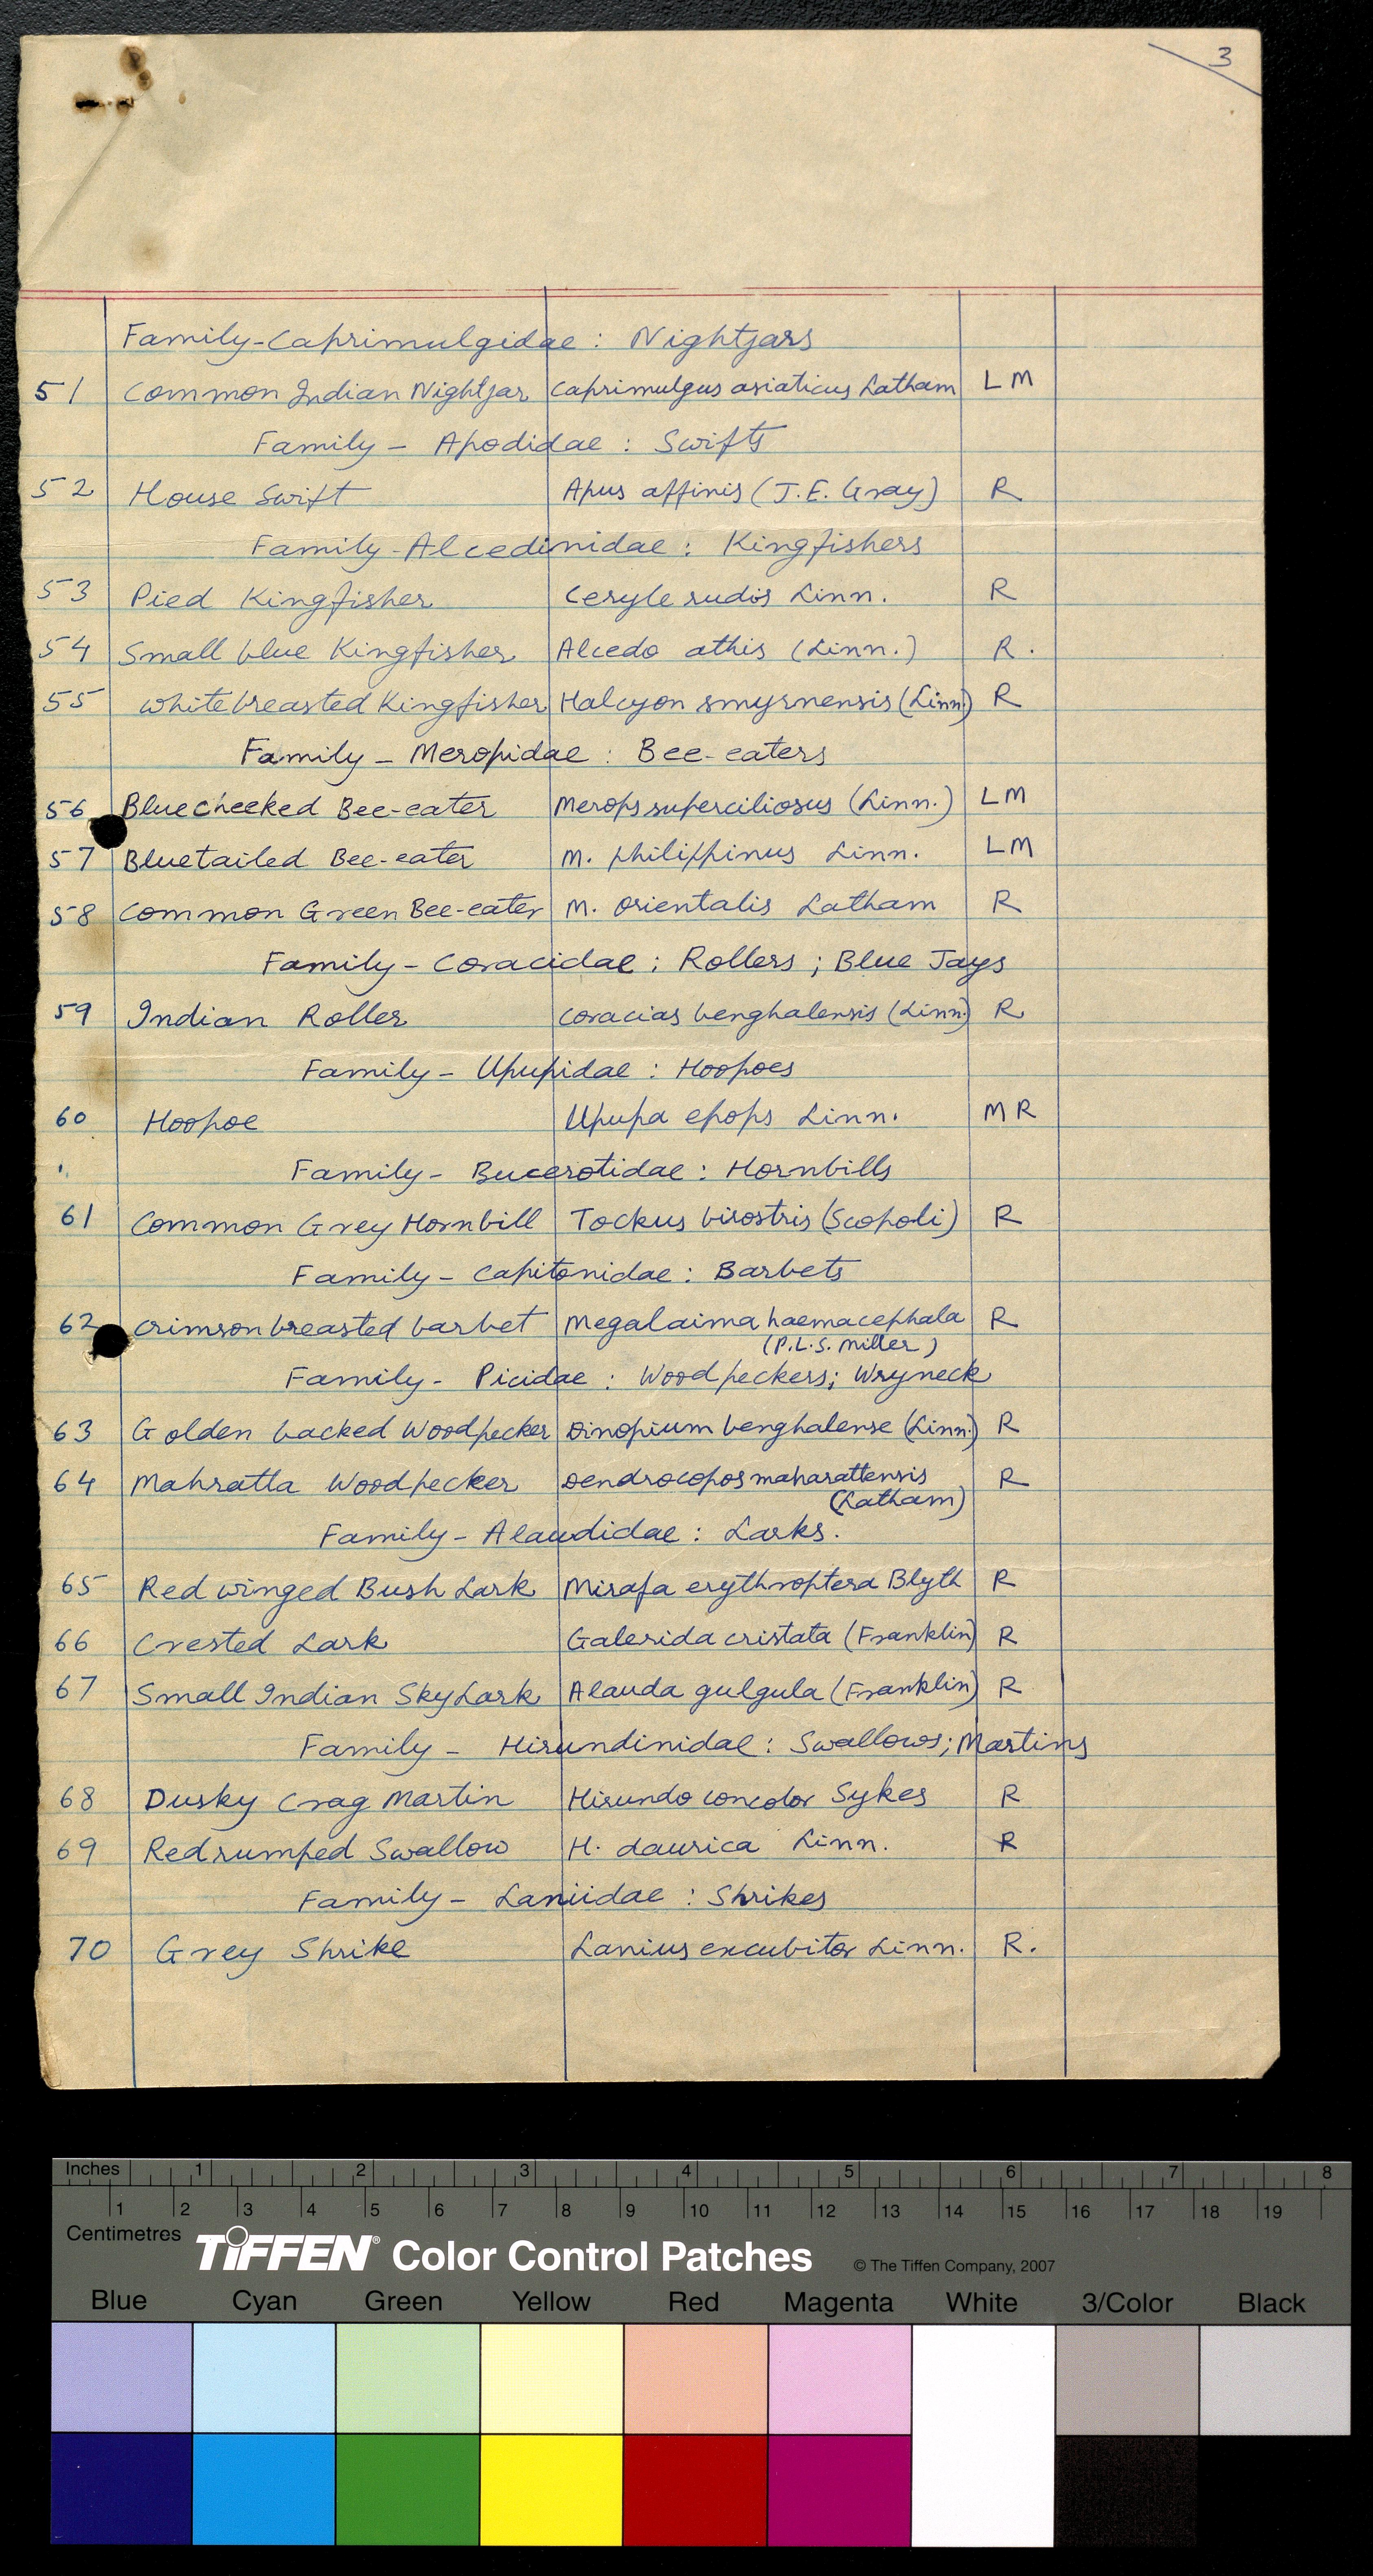 3
Family-Caprimulgidae : Nightjars
51 Common Indian Nightjar Caprimulgus asiaticus Latham L M
Family - Apodidae : Swifts
52 House Swift Apus affinis (J.E. Gray) R
Family-Alcedinidae : Kingfishers
53 Pied Kingfisher Ceryle rudis Linn. R
54 Small blue Kingfisher Alcedo athis (Linn.) R.
55 Whitebreasted Kingfisher Halcyon smyrnensis (Linn) R
Family - Meropidae : Bee-eaters
56 Bluecheeked Bee-eater Merops superciliosus (Linn.) L M
57 Bluetailed Bee-eater M. philippinus Linn. L M
58 Common Green Bee-eater M. orientalis Latham R
Family - Coracidae ; Rollers ; Blue Jays
59 Indian Roller Coracias benghalensis (Linn.) R
Family - Upupidae : Hoopoes
60 Hoopoe Upupa epops Linn. M R
Family - Bucerotidae : Hornbills
61 Common Grey Hornbill Tockus birostris (Scopoli) R
Family - Capitonidae : Barbets
62 Crimson breasted barbet Megalaima haemacephala R
(P.L.S. Miller)
Family - Picidae : Woodpeckers; Wryneck
63 Golden backed Woodpecker Dinopium benghalense (Linn.) R
64 Mahratta Woodpecker Dendrocopos maharattensis R
(Latham)
Family - Alaudidae : Larks.
65 Red winged Bush Lark Mirafa erythroptera Blyth R
66 Crested Lark Galerida cristata (Franklin) R
67 Small Indian SkyLark Alauda gulgula (Franklin) R
Family - Hirundinidae : Swallows; Martins
68 Dusky Crag Martin Hirundo concolor Sykes R
69 Redrumped Swallow H. daurica Linn. R
Family - Laniidae : Shrikes
70 Grey Shrike Lanius excubitor Linn. R.
Inches 1 2 3 4 5 6 7 8
1 2 3 4 5 6 7 8 9 10 11 12 13 14 15 16 17 18 19
Centimetres
TIFFEN® Color Control Patches © The Tiffen Company, 2007
Blue Cyan Green Yellow Red Magenta White 3/Color Black